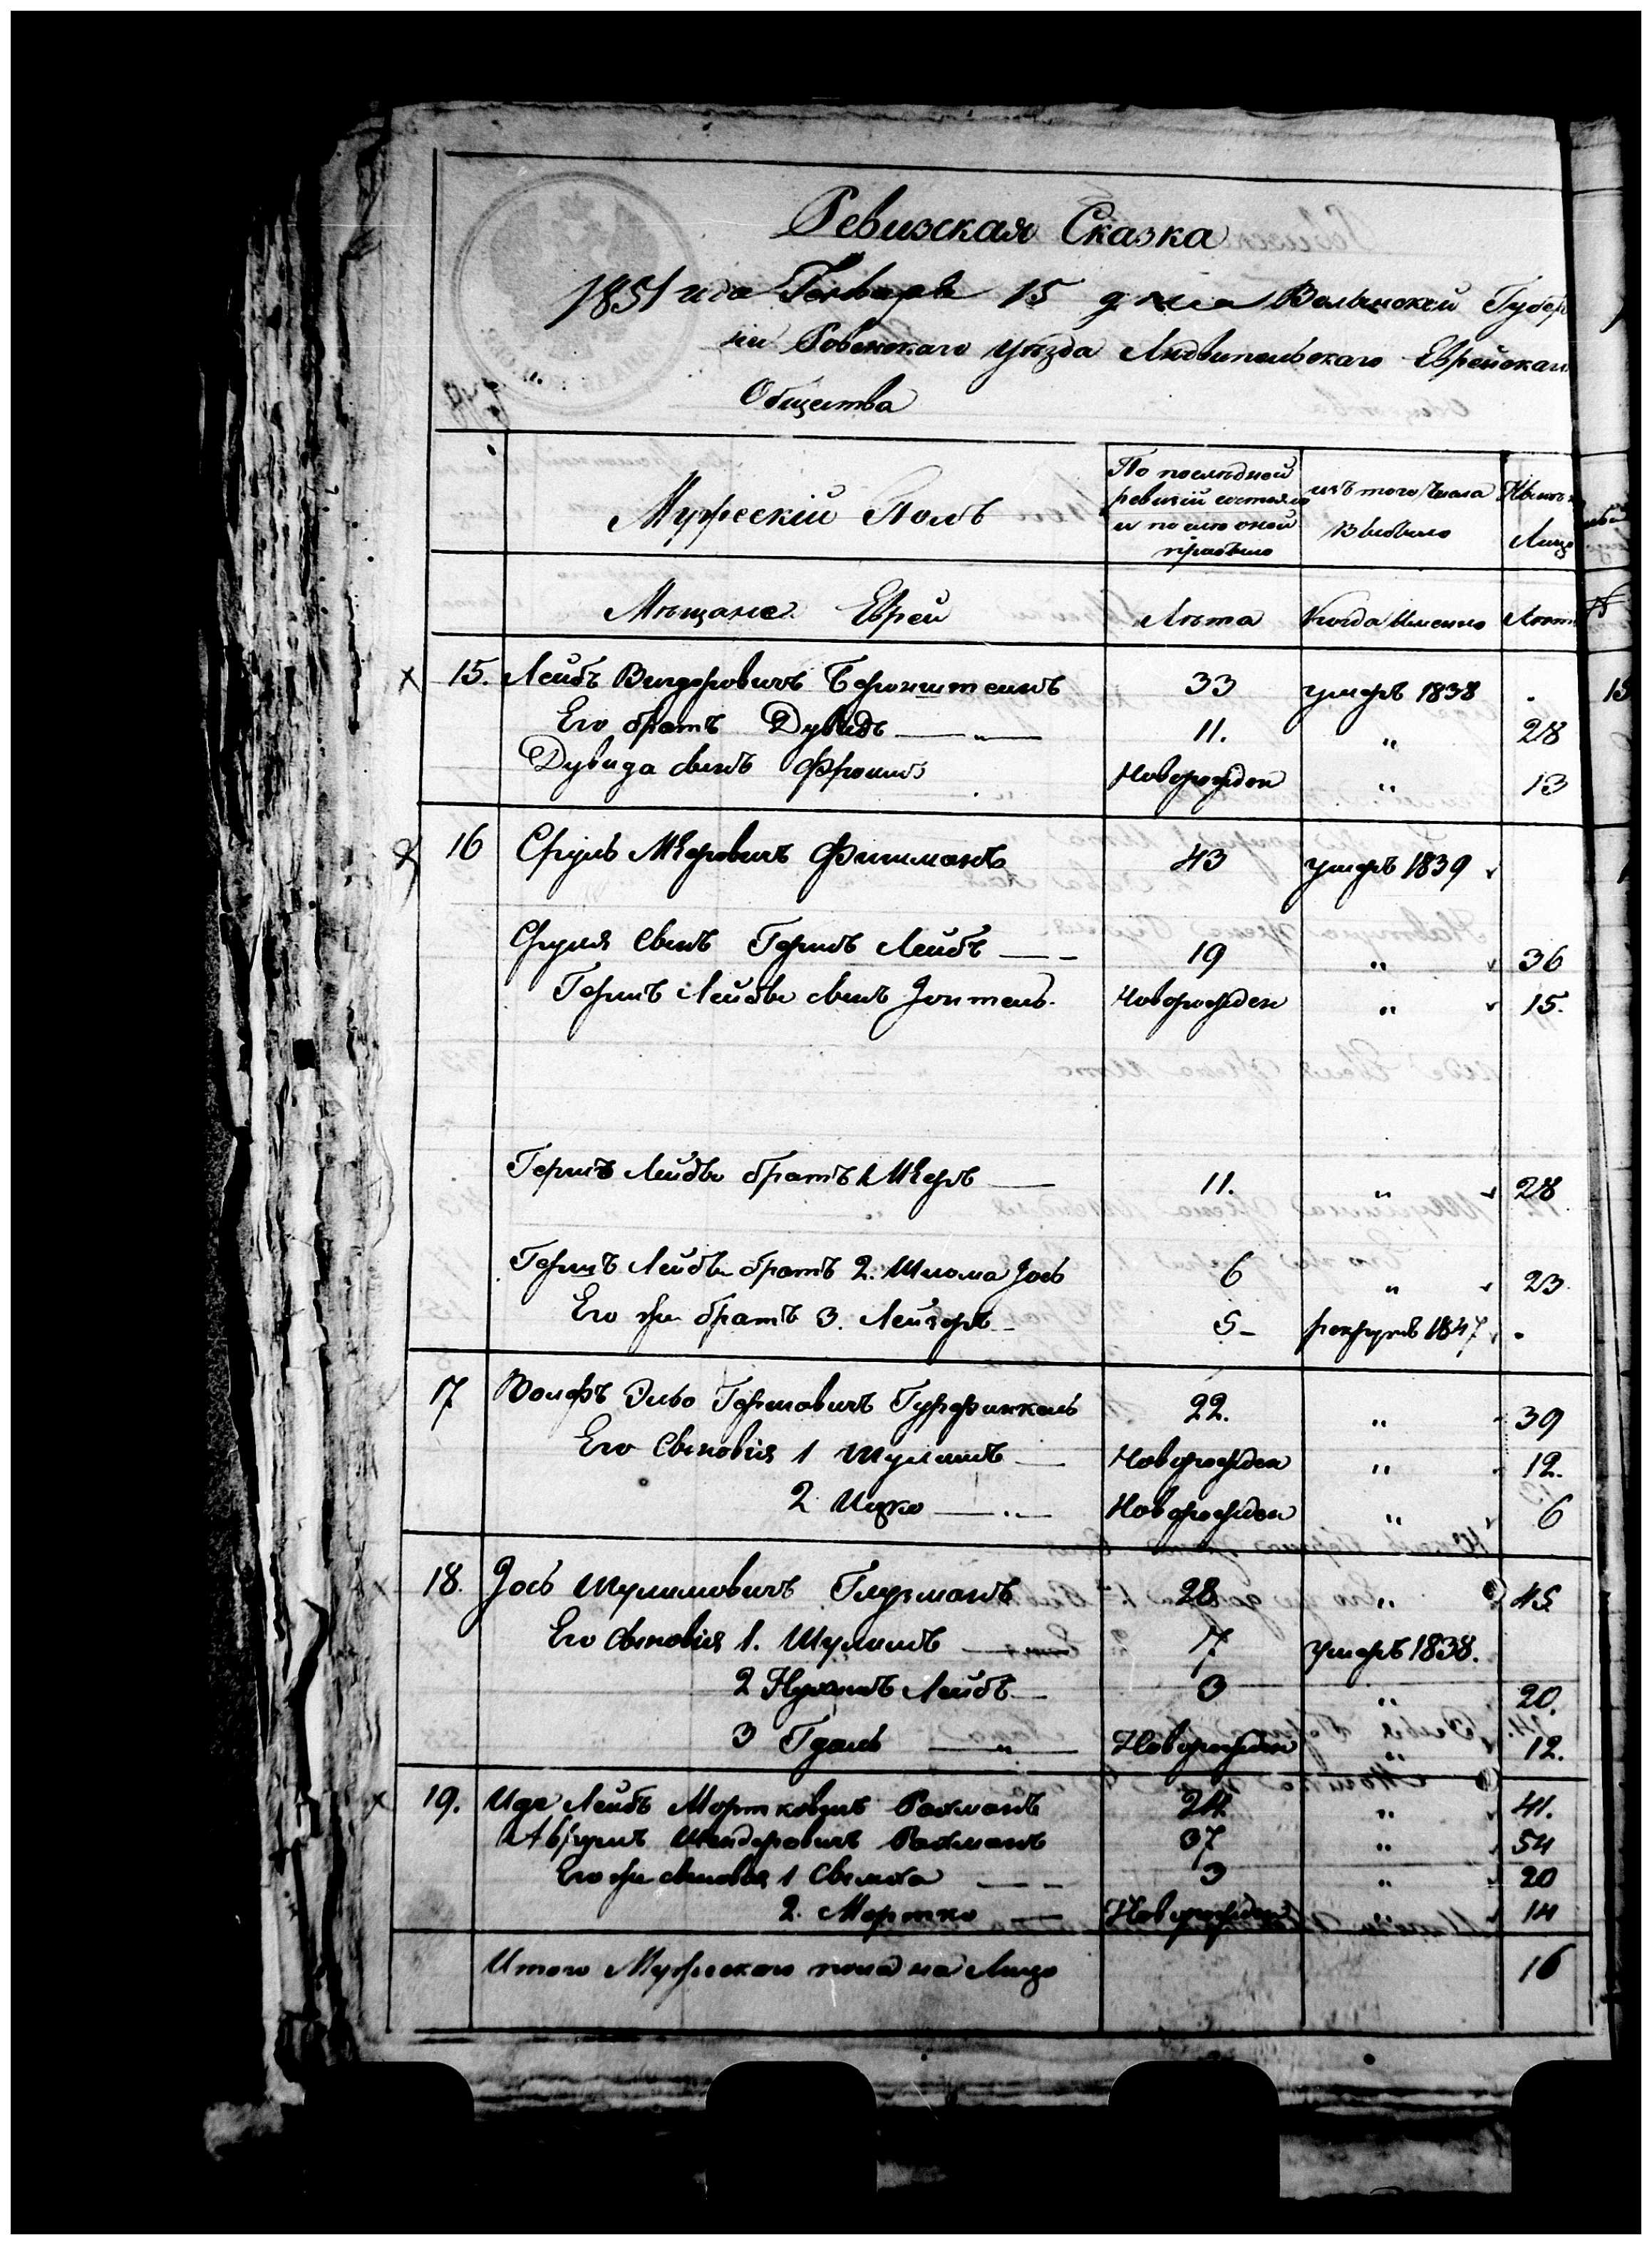 Ревизская Сказка
1851 года Генваря 15 дня Волынской Губер
нии Ровенского уезда Людвипольского Еврейскаго
Общества
Мужеский Полъ
По последней ревизіи состояло и после оной прибыло
изъ того числа Выбыло
Ныне Лицо
Мещане Евреи
Лета
Когда Именно
Лета
15. Лейбъ Бернштейнъ 33 умеръ 1838 .
Его братъ Дувидъ — " — 11. " 28
Дувида сынъ Фроимъ Новорожден " 13
16 Сруль Меровичъ Фишманъ 43 умеръ 1839
Сруля Сынъ Гершъ Лейбъ — 19 " 36
Гершъ Лейбы сынъ Зонтель Новорожден " 15.
Гершъ Лейбы братъ 1 Меръ — 11. " 28
Гершъ Лейбы братъ 2. Шлома Іось 6 " 23
Его же братъ 3. Лейзеръ — 5 — рекрутъ 1847 .
17 Волфъ Эльо Гершовичъ Гурфинкель 22. " 39
Его Сыновія 1 Шулимъ — Новорожден " 12.
2 Ицко — " — Новорожден " 6
18. Іось Шулимовичъ Глузманъ 28 " 45
Его Сыновія 1. Шулимъ — 7 умеръ 1838.
2 Нухимъ Лейбъ — 3 " 20.
3 Гдаль — " — Новорожден " 12.
19. Иде Лейбъ Мортковичъ Рахманъ 24 " 41.
Аврумъ Шендеровичъ Рахманъ 37 " 54
Его же сыновья 1 — 3 " 20
2. Мортко — Новорожден " 14
Итого Мужескаго пола на Лицо 16